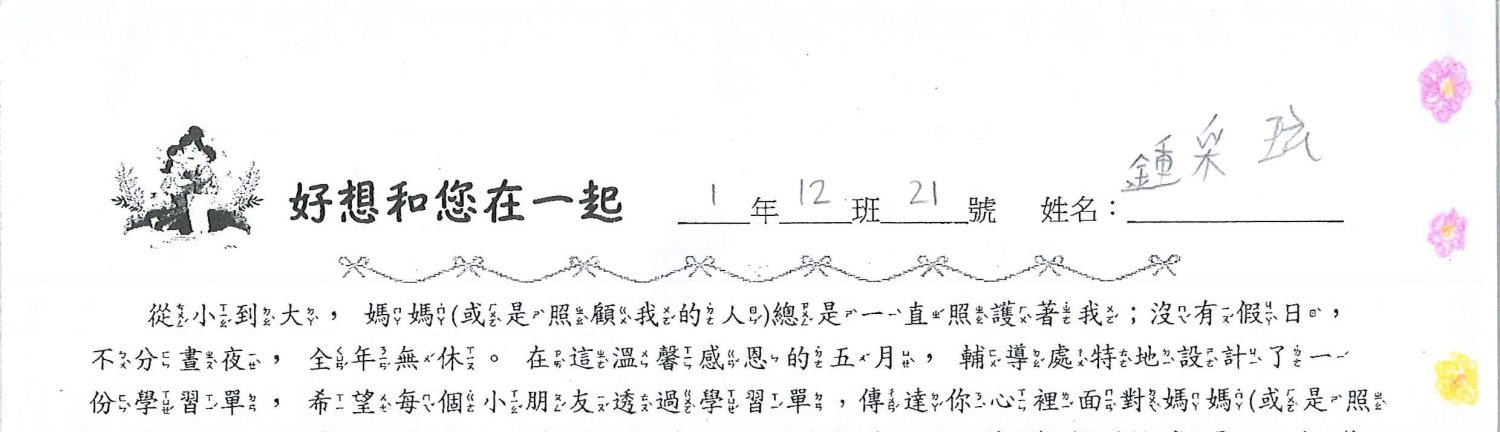 好想和您在一起 1年12班21號 姓名：鍾采玹
從小到大，媽媽(或是照顧我的人)總是一直照護著我；沒有假日，
不分晝夜，全年無休。在這溫馨感恩的五月，輔導處特地設計了一
份學習單，希望每個小朋友透過學習單，傳達你心裡面對媽媽(或是照